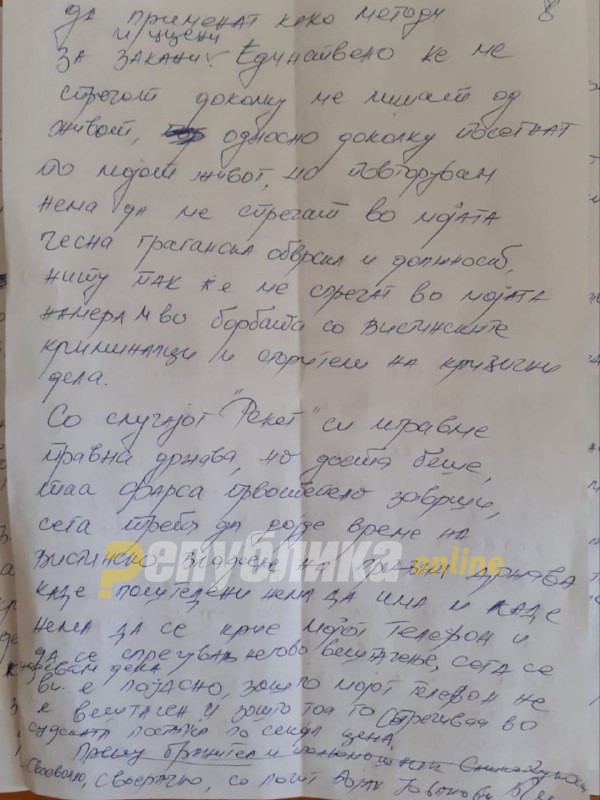 да применат како методи 8
и уцени
за закани. Единствено ќе ме
стрегат доколку ме лишат од
живот, односно доколку посегнат
по мојот живот, но повторувам
нема да ме спречат во мојата
чесна граѓанска обврска и должност,
ниту пак ќе ме спречат во мојата
намера и во борбата со вистинските
криминалци и сторители на кривични
дела.
Со случајот "Рекет" си игравме
правна држава, но доста беше,
таа фарса првостепено заврши,
сега треба да дојде време на
вистинско владеење на правна држава
Република online
каде поштедени нема да има и каде
нема да се крие мојот телефон и
да се спречува неговото вештачење, сега се
надевам дека
ви е појасно, зошто мојот телефон не
е вештачен и зошто тоа го спречуваа во
судската постапка по секоја цена.
Преку бранител и
Своеволно, своерачно, со почит